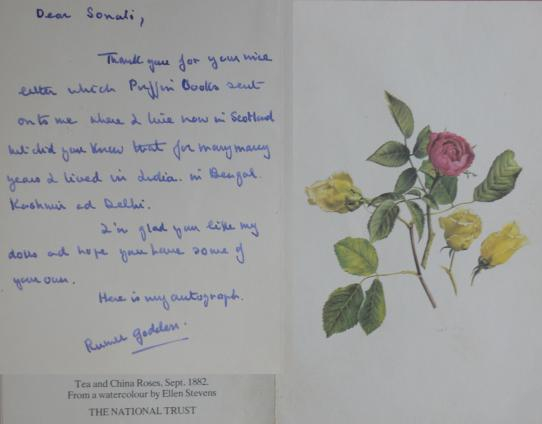 Dear Sonali,
Thank you for your nice
letter which Puffin Books sent
on to me where I live now in Scotland
but did you know that for many many
years I lived in India. in Bengal.
Kashmir ad Delhi.
I'm glad you like my
dolls ad hope you have some of
your own.
Here is my autograph.
Rumer Godden.
Tea and China Roses, Sept. 1882.
From a watercolour by Ellen Stevens
THE NATIONAL TRUST